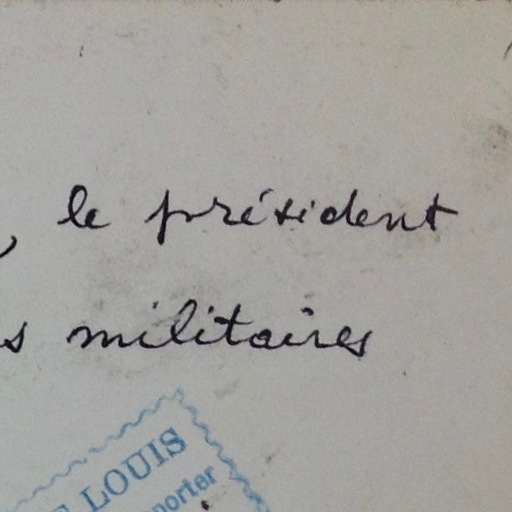 , le président
s militaires
LOUIS
porter